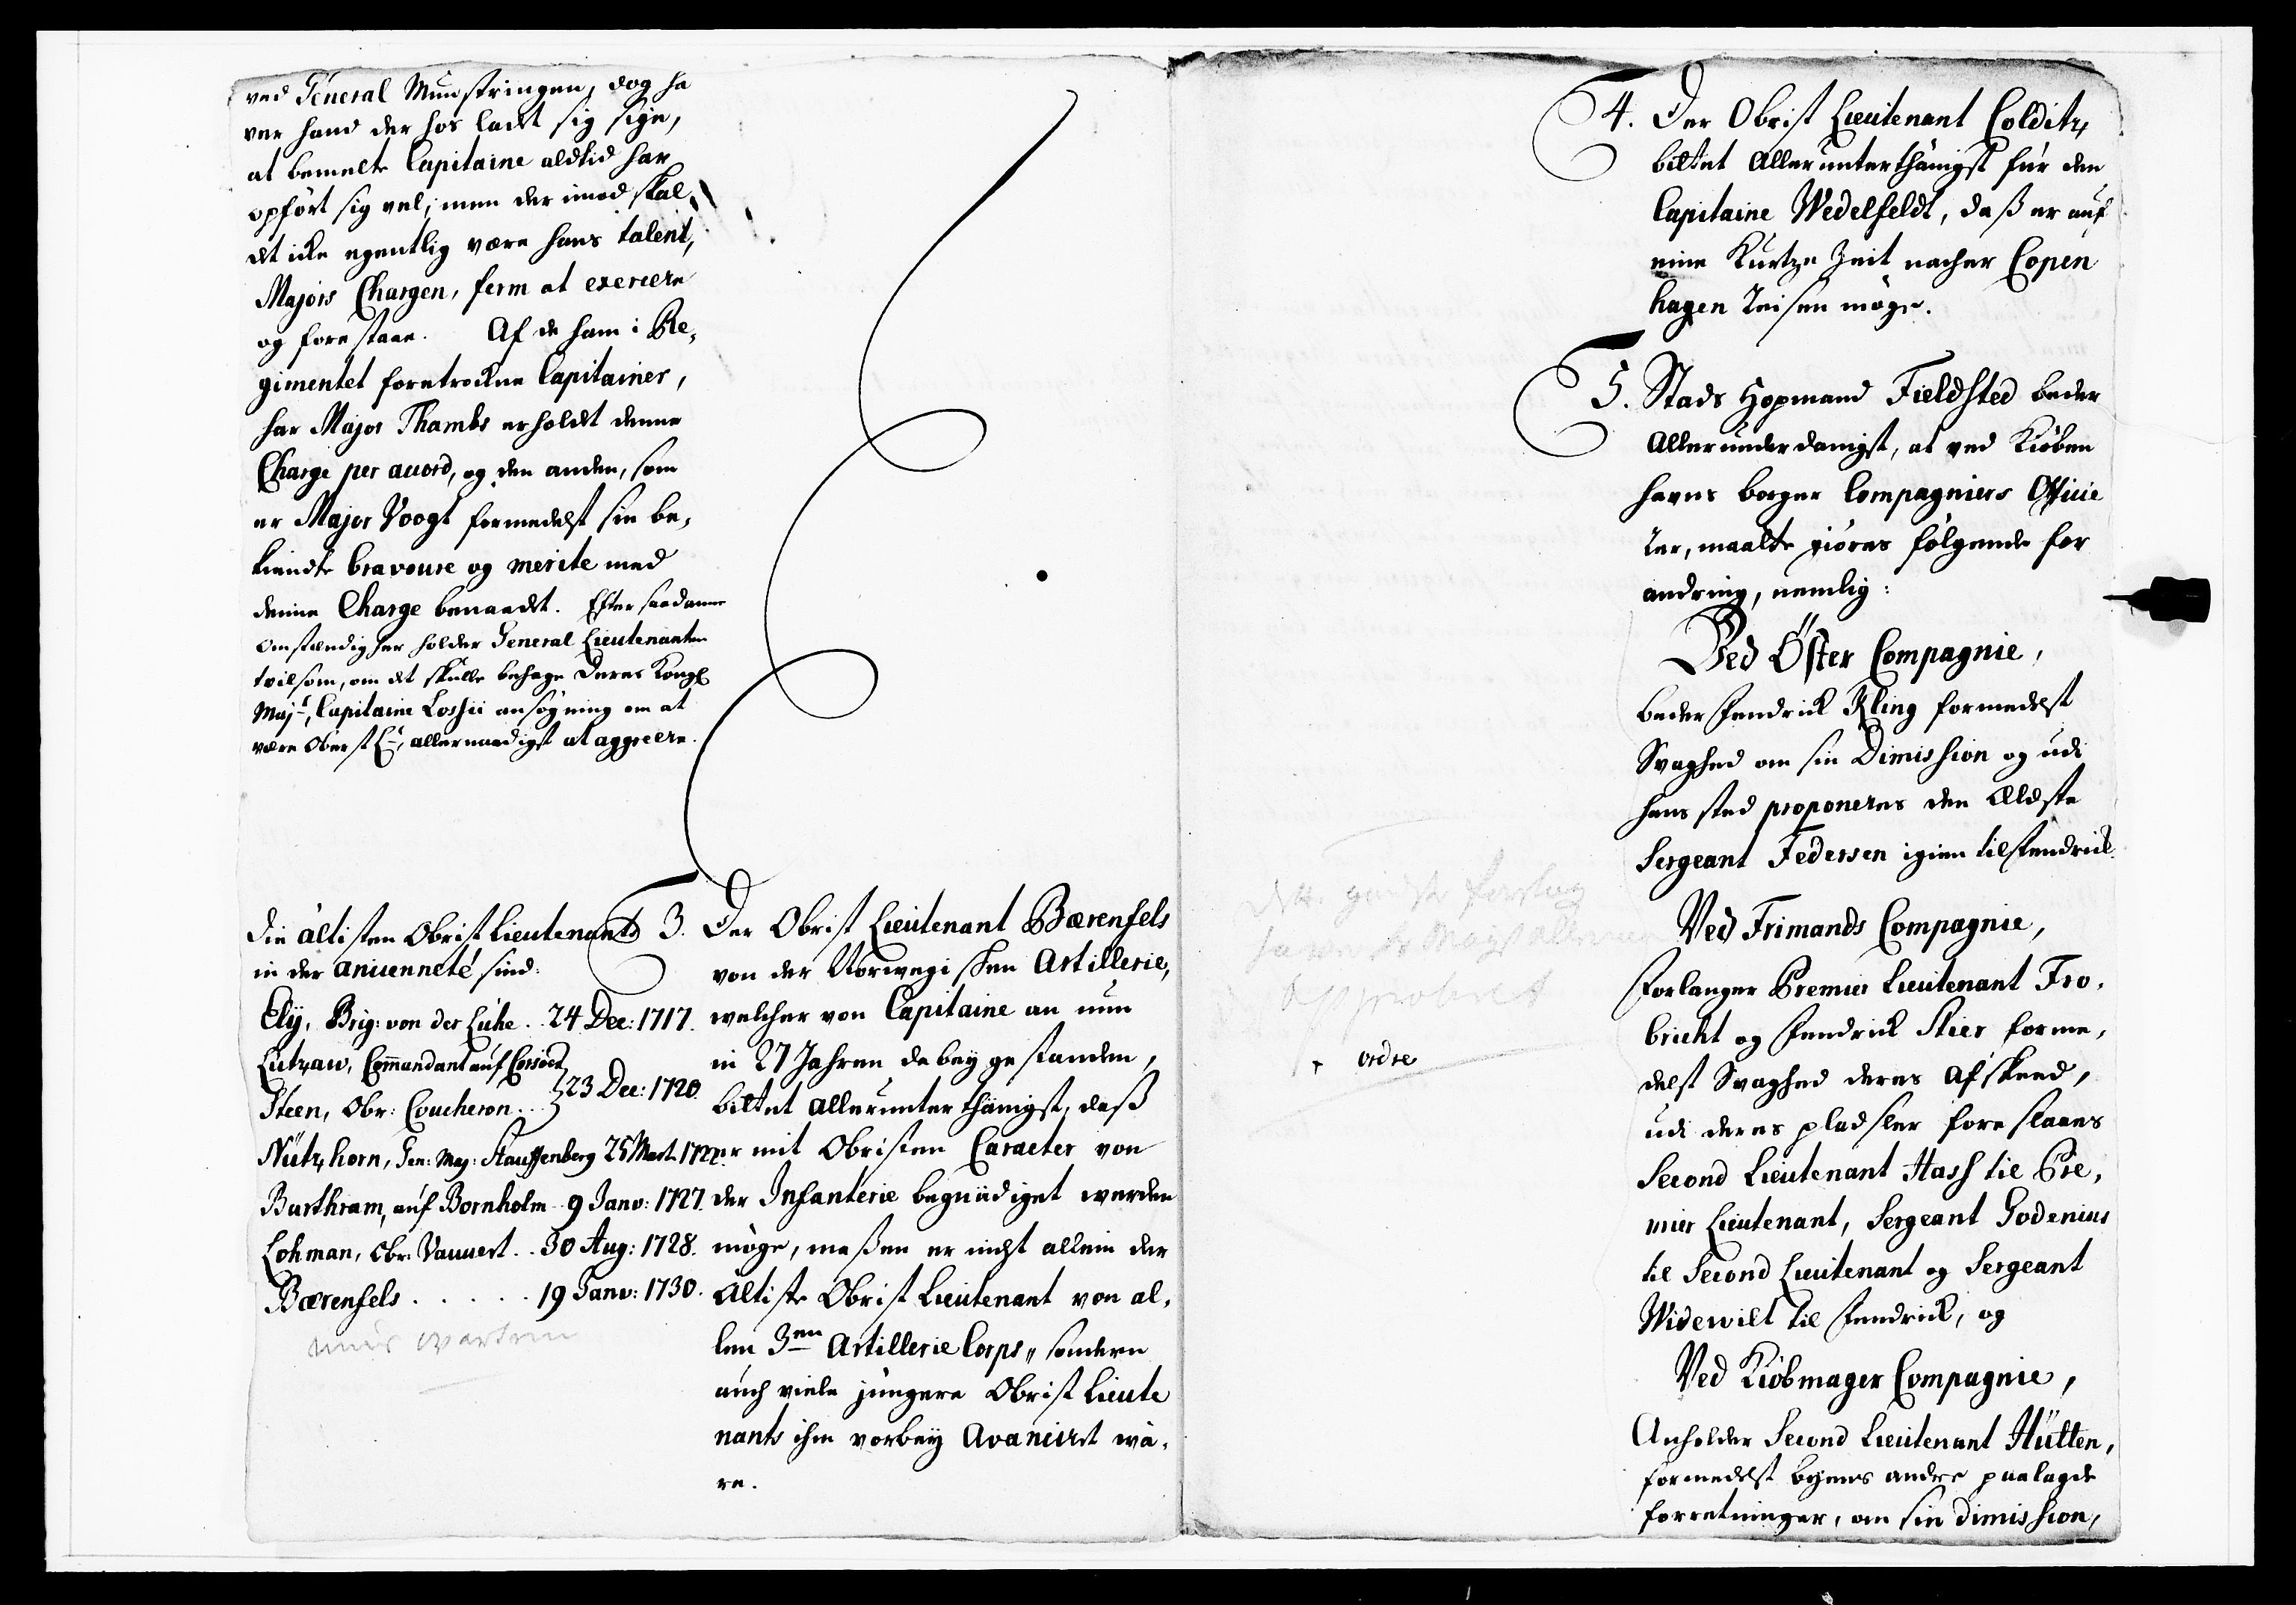 ved General Munstringen, dog ha
ver hand der hos ladet sig sige,
at bemelte Capitaine aldtid har
opført sig vel; men der imod skal,
det icke egentlig være hans talent,
Majors Chargen, ferm at exercere
og forestaae. Af de ham i Re,
gimentet foretrockne Capitainer,
har Major Thambs erholdet denne
Charge per accord, og den anden, som
er Major Voogt formedelst sin be,
kiendte bravoure og merite med
denne Charge benaadet. Efter saadanne
Omstændigheder holder General Lieutenanten
tvilsom, om det skulle behage Deres Kongl
Majt, Capitaine Lossii ansøgning om at
være Oberst Lt, allernaadigst at aggreere.
Die ältisten Obrist Lieutenants
in der ancienneté sind:
Ely, Brig: von der Lühe . . 24 Dec: 1717.
Lützaw, Commandant auf Corsöer
Steen, Obr: Coucheron . . } 23 Dec: 1720.
Nützhorn, Gen: Maj: Stauffenberg 25 Mart. 1722.
Barthram, auf Bornholm . . 9 Janv: 1727.
Lohman, Obr: Vauvert . . 30 Aug: 1728.
Bærenfels . . . . . 19 Janv: 1730.
3. Der Obrist Lieutenant Bærenfels
von der Norwegischen Artillerie,
welcher von Capitaine an nun
in 27 Jahren dabey gestanden,
bittet allerunterthänigst, daß
er mit Obristen Caracter von
der Infanterie begnädiget werden
möge, maßen er nicht allein der
ältiste Obrist Lieutenant von al,
len 3en Artillerie Corps, sondern
auch viele jüngere Obrist Lieute
nants ihm vorbey avanciret wä,
re.
4. Der Obrist Lieutenant Colditz
bittet allerunterthänigst für den
Capitaine Wedelfeldt, daß er auf
eine Kurtze Zeit nacher Copen
hagen reisen möge.
5. Stads Hopmand Fieldsted beder
allerunderdanigst, at ved Kiöben
havns borger Compagniers Officie
rer, maatte giöres følgende for
andring, nemlig:
Ved Öster Compagnie,
beder Fendrick Kling formedelst
Svaghed om sin Dimission og udi
hans sted proponeres den Ældste
Sergeant Federsen igien til Fendrick.
Ved Frimands Compagnie,
Forlanger Premier Lieutenant Fro,
bricht og Fendrick Stier forme,
delst Svaghed deres Afskeed,
udi deres pladser foreslaaes
Second Lieutenant Hass til Pre,
mier Lieutenant, Sergeant Godenius
til Second Lieutenant og Sergeant
Widewilt til Fendrick, og
Ved Kiöbmager Compagnie,
Anholder Second Lieutenant Hütten,
formedelst byens andre paalagde
forretninger, om sin dimission,
dette forslag
approberet
+ ordre